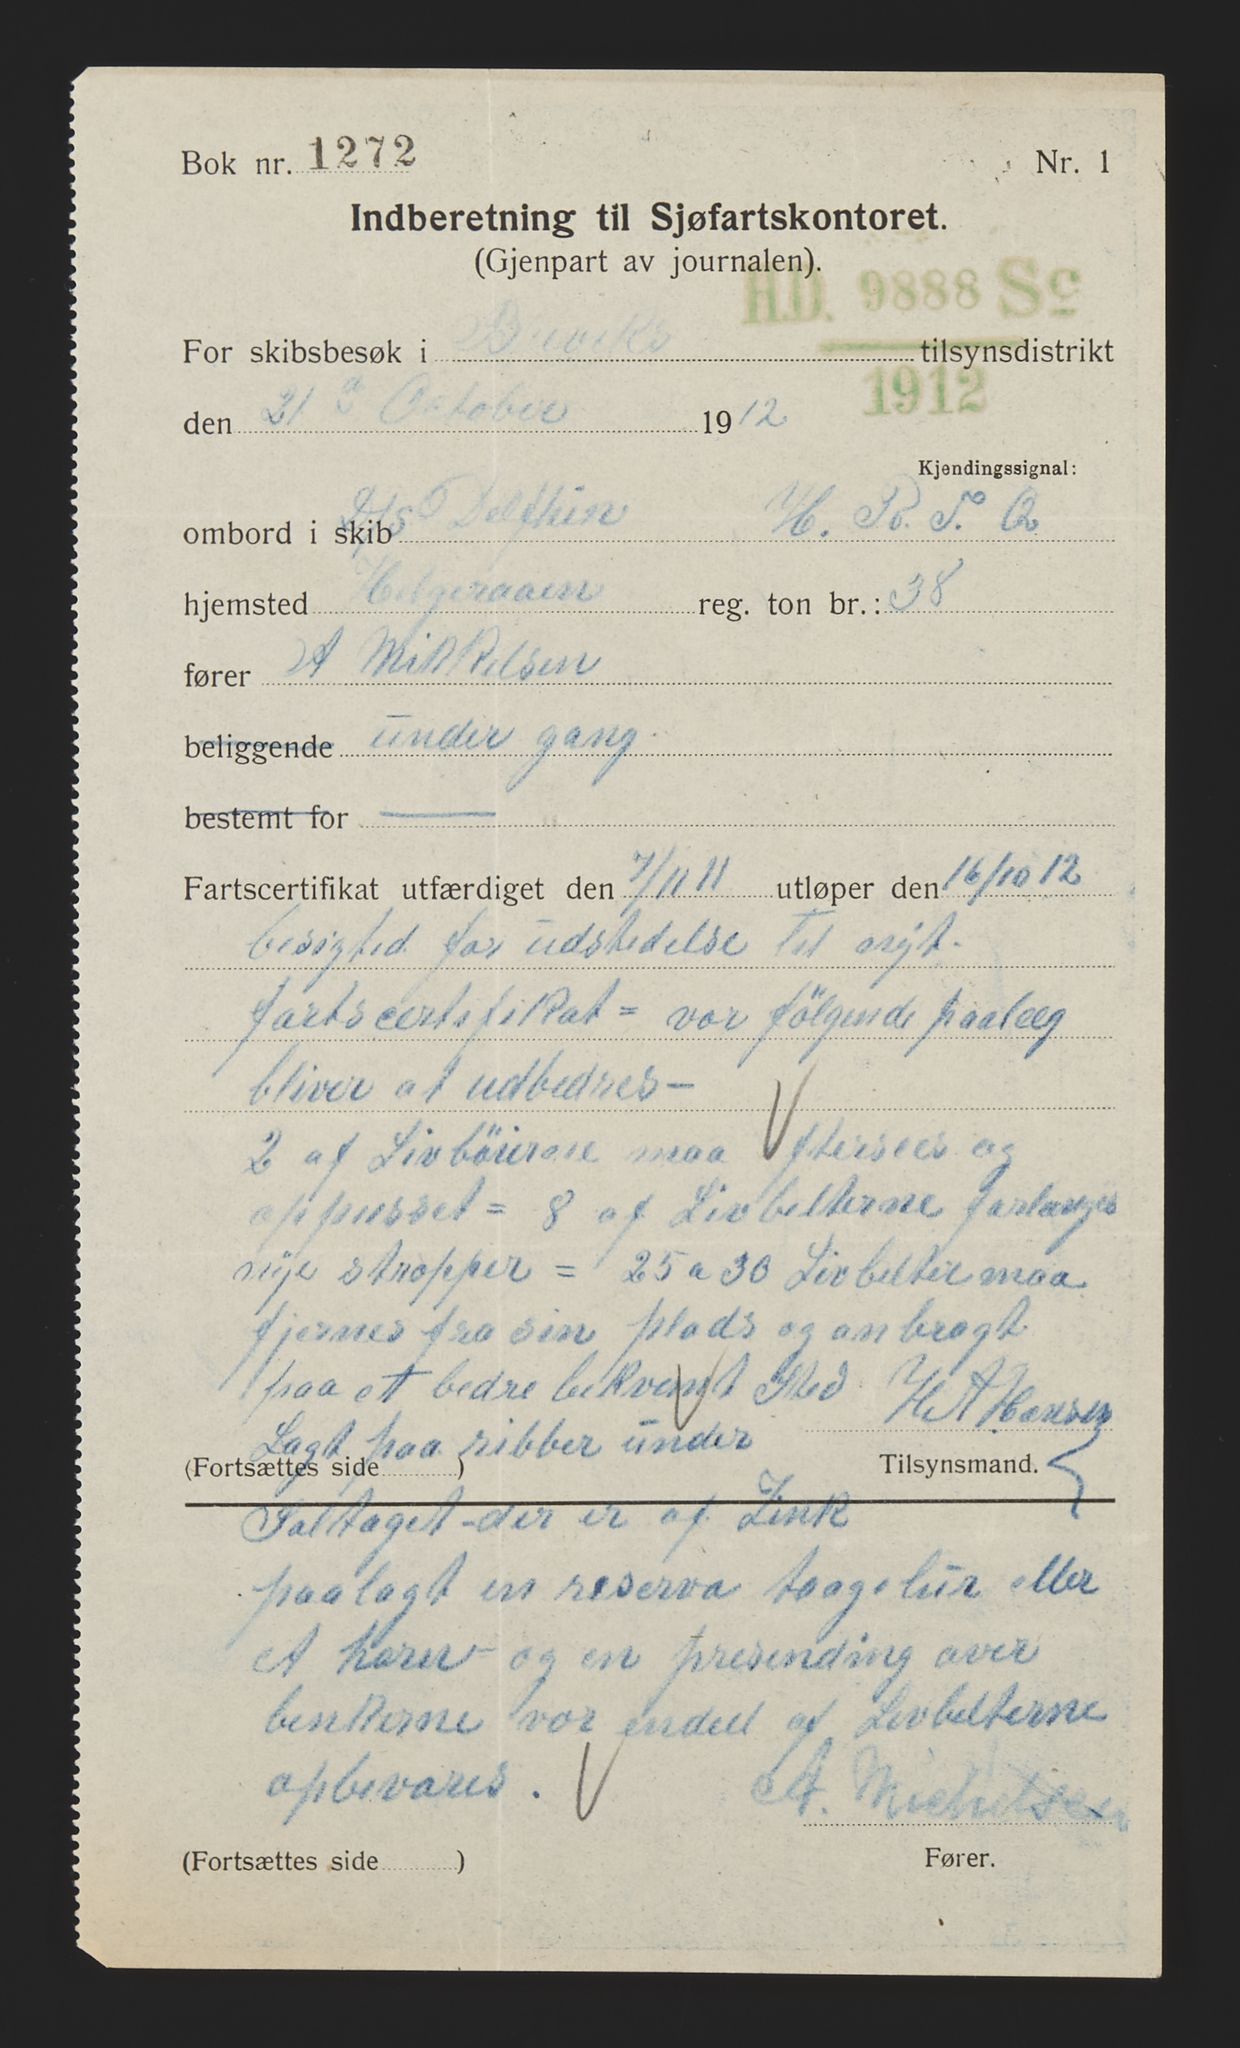 Bok nr. 1272 Nr. 1
Indberetning til Sjøfartskontoret.
(Gjenpart av journalen).
H.D. 9888 Sc
1912
For skibsbesøk i Breviks tilsynsdistrikt
den 21 October 1912
Kjendingssignal:
ombord i skib D/S Delphin H. R. T. Q
hjemsted Helgeraaen reg. ton br.: 38
fører A Mikkelsen
beliggende under gang
bestemt for —
Fartscertifikat utfærdiget den 7/11 11 utløper den 16/10 12
besigted for udstedelse til nyt
fartscertifikat = vor følgende paalæg
bliver at udbedres –
2 af Livbøierne maa eftersees og
oppusset = 8 af Livbelterne forlanges
nye stropper = 25 a 30 Livbelter maa
fjernes fra sin plads og anbragt
paa et bedre bekvemt Sted H A Hansen
Lagt paa ribber under
(Fortsættes side ) Tilsynsmand.
Soltaget der er af Zink
paalagt en reserva taagelur eller
et horn og en presending over
benkerne vor endell af Livbelterne
opbevares. A. Michelsen
(Fortsættes side ) Fører.